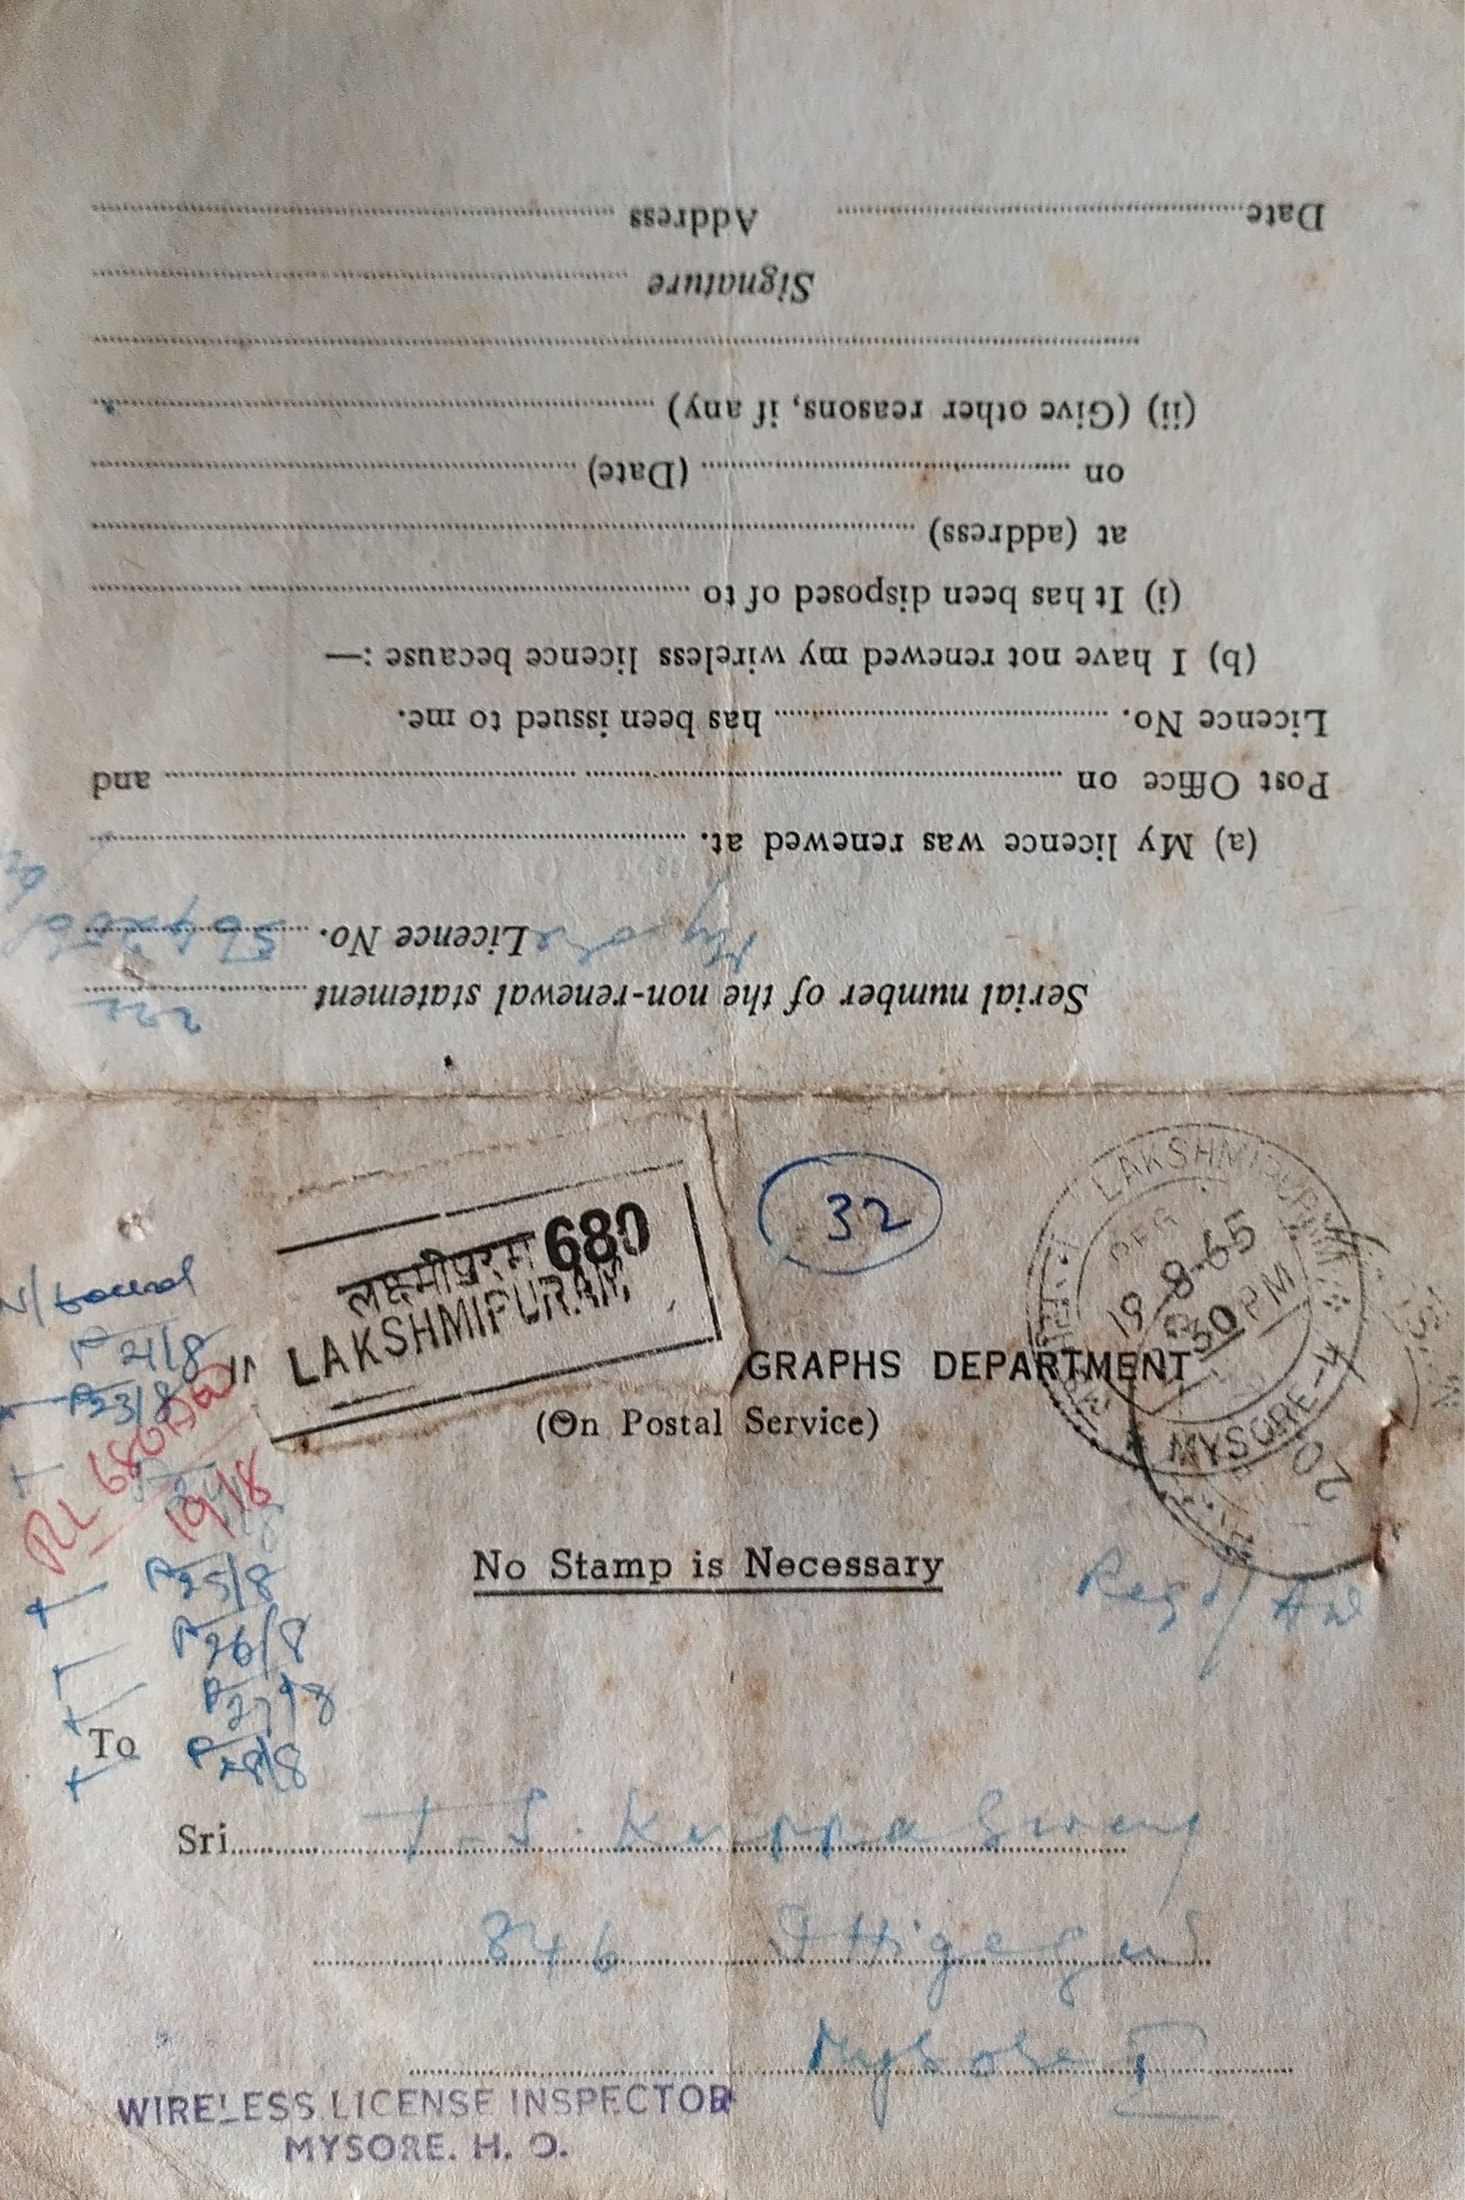 Serial number of the non-renewal statement .......... 222
Mysore Licence No. ..........
(a) My licence was renewed at. ..........
Post Office on .......... and
Licence No. .......... has been issued to me.
(b) I have not renewed my wireless licence because :—
(i) It has been disposed of to ..........
at (address) ..........
on .......... (Date) ..........
(ii) (Give other reasons, if any) ..........
Signature ..........
Date.......... Address ..........
लक्ष्मीपुरम 680
LAKSHMIPURAM
32
LAKSHMIPURAM
19-8-65
30 PM
MYSORE-4
20
GRAPHS DEPARTMENT
(On Postal Service)
No Stamp is Necessary
Regd/AD
21/8
23/8
RL 680
19/8
25/8
26/8
27/8
28/8
To
Sri.......... T-S. Kuppa Swamy
846 Ittigegud
Mysore
WIRELESS LICENSE INSPECTOR
MYSORE. H. O.